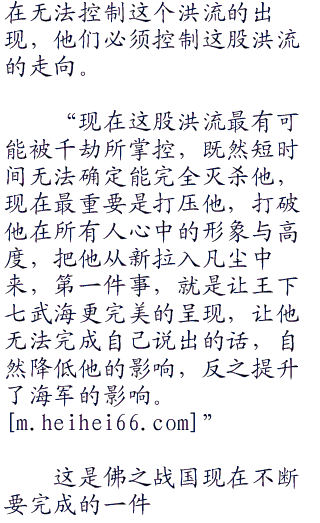 在无法控制这个洪流的出
现，他们必须控制这股洪流
的走向。
“现在这股洪流最有可
能被千劫所掌控，既然短时
间无法确定能完全灭杀他，
现在最重要是打压他，打破
他在所有人心中的形象与高
度，把他从新拉入凡尘中
来，第一件事，就是让王下
七武海更完美的呈现，让他
无法完成自己说出的话，自
然降低他的影响，反之提升
了海军的影响。
[m.heihei66.com]”
这是佛之战国现在不断
要完成的一件